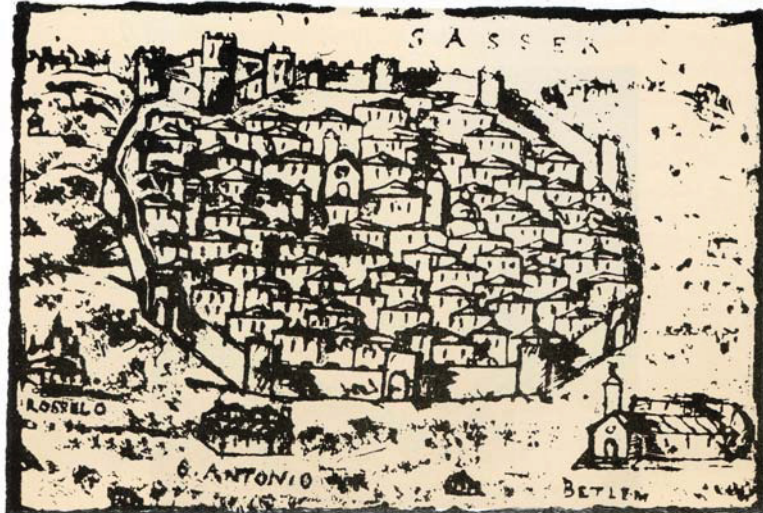 SASSER
ROSSELO
S. ANTONIO
BETLEM